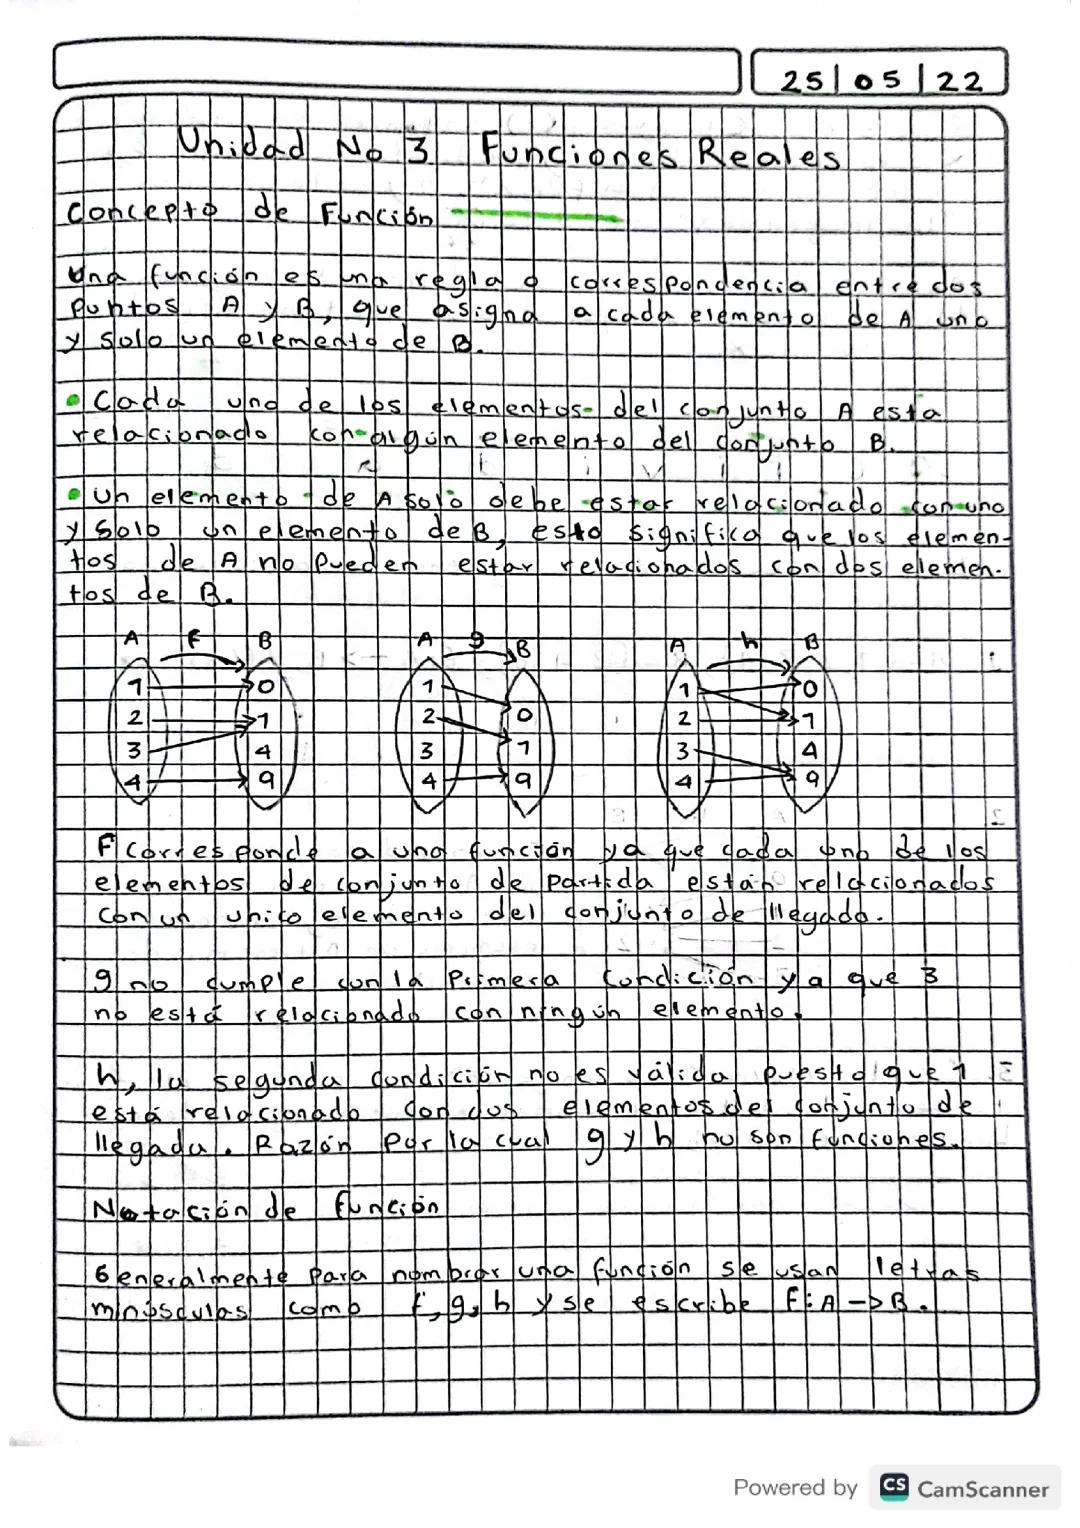 25|05|22
Unidad No 3 Funciones Reales
Concepto de Función
Una función es una regla o correspondencia entre dos
puntos A y B, que asigna a cada elemento de A uno
y solo un elemento de B.
• Cada uno de los elementos del conjunto A esta
relacionado con algún elemento del conjunto B.
• Un elemento de A solo debe estar relacionado con uno
y solo un elemento de B, esto significa que los elemen-
tos de A no pueden estar relacionados con dos elemen-
tos de B.
A f B A g B A h B
1 0 1 1 0
2 1 2 0 2 1
3 4 3 1 3 4
4 9 4 9 4 9
F corresponde a una función ya que cada uno de los
elementos de conjunto de partida están relacionados
con un unico elemento del conjunto de llegada.
g no cumple con la Primera Condición ya que 3
no está relacionado con ningún elemento.
h, la segunda condición no es válida puesto que 1
está relacionado con dos elementos del conjunto de
llegada. Razón por la cual g y h no son funciones.
Notación de función
Generalmente para nombrar una función se usan letras
minúsculas como f, g, h y se escribe F: A -> B.
Powered by CS CamScanner